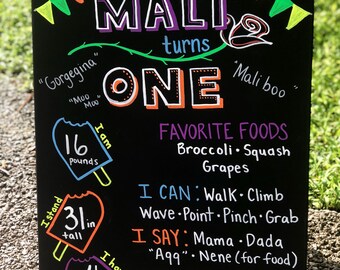 MALI
turns
"Gorgegina"
"Mali boo"
"Moo
Moo"
ONE
I am
16
pounds
FAVORITE FOODS
Broccoli • Squash
Grapes
I CAN: Walk • Climb
Wave • Point • Pinch • Grab
I stand
31 in
tall
I SAY: Mama • Dada
"Agg" • Nene (for food)